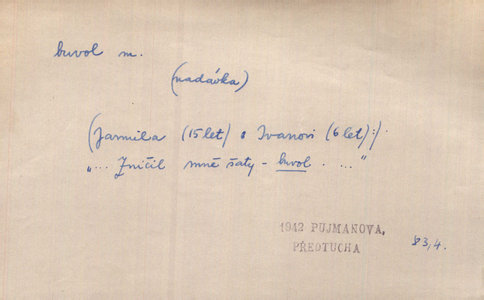 buvol m.
(nadávka)
(Jarmila (15 let) o Ivanovi (6 let):)
"... Zničil mně šaty - buvol. ..."
1942 PUJMANOVA,
PŘEDTUCHA
83,4.